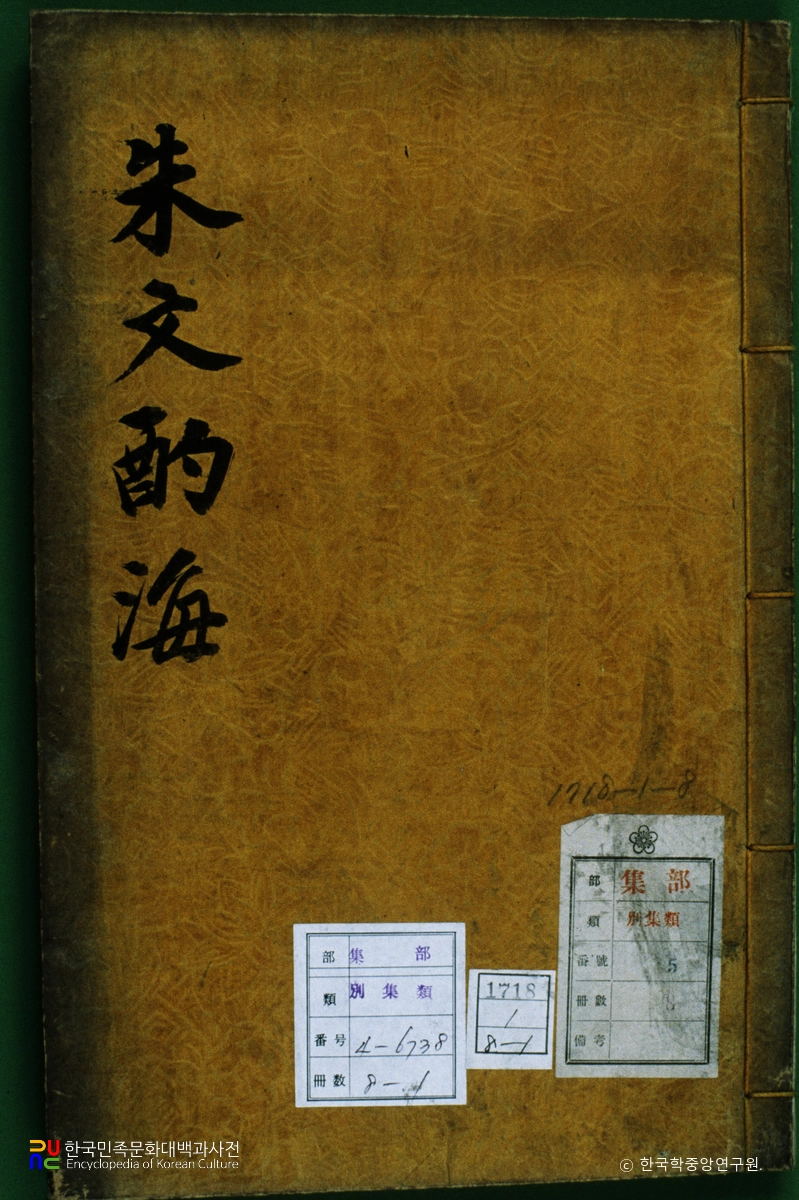 朱文酌海
1718-1-8
部 集部
類 別集類
番號 5
冊數
備考
部 集部
類 別集類
番号 4-6738
冊数 8-1
1718
1
8-1
한국민족문화대백과사전
Encyclopedia of Korean Culture
© 한국학중앙연구원